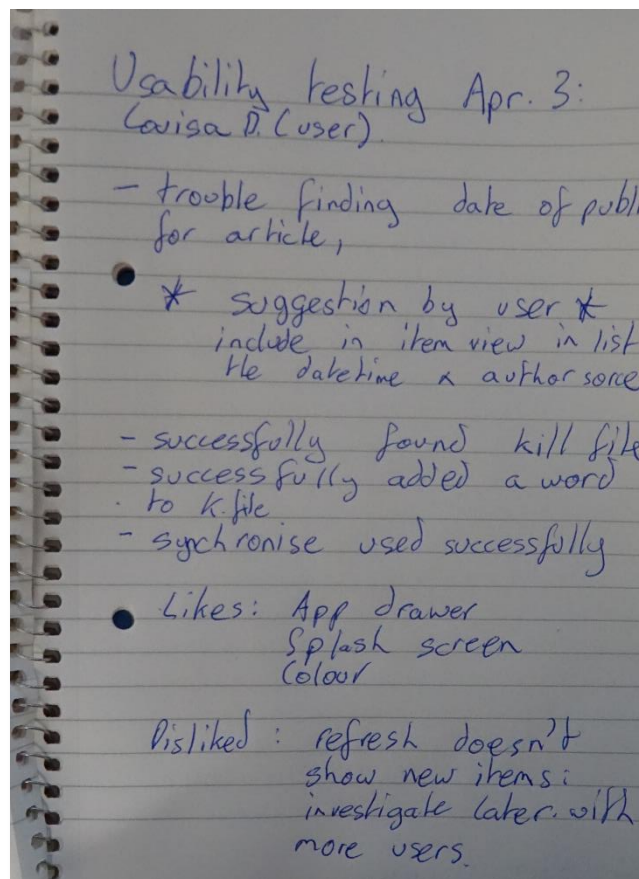 Usability testing Apr. 3:
Louisa D. (user)
- trouble finding date of publ
for article,
* suggestion by user *
include in item view in list
the datetime & author sorce
- successfully found kill file
- successfully added a word
to k.file
- sychronise used successfully
Likes: App drawer
Splash screen
Colour
Disliked: refresh doesn't
show new items:
investigate later. with
more users.